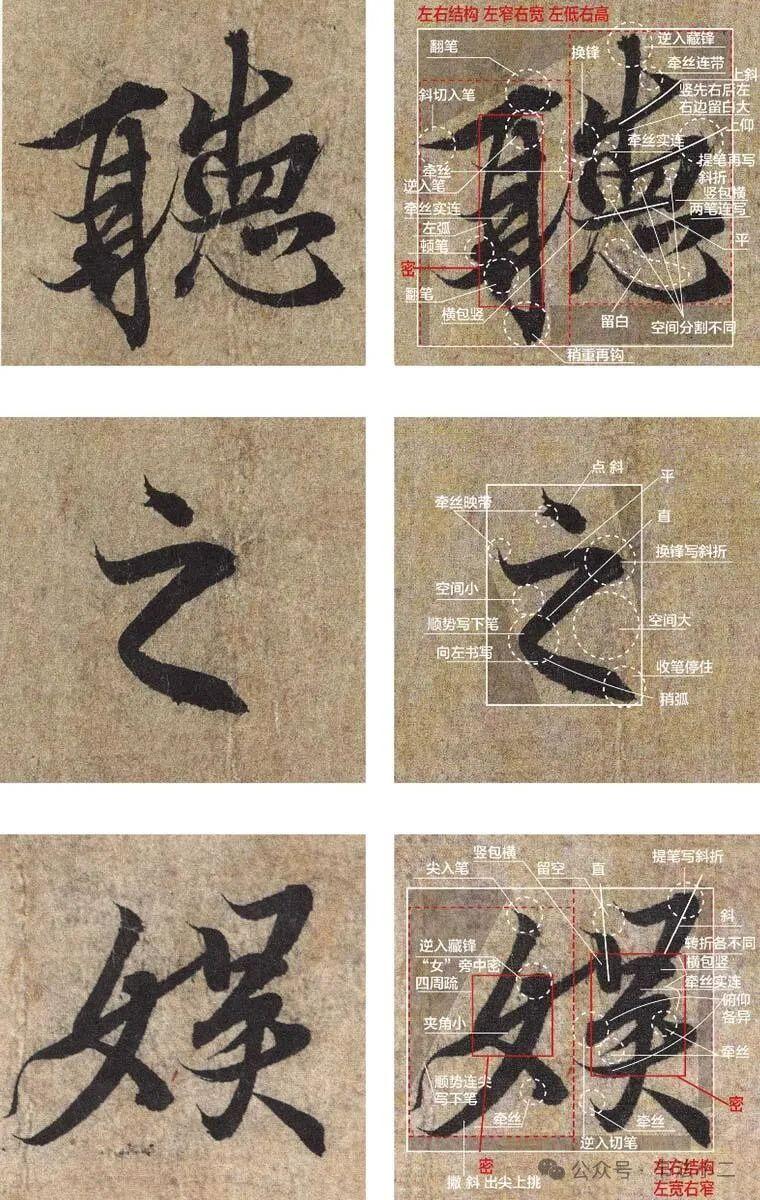 聽
左右结构 左窄右宽 左低右高
翻笔
换锋
逆入藏锋
牵丝连带
上斜
斜切入笔
竖先右后左
右边留白大
上仰
牵丝实连
提笔再写
斜折
牵丝
逆入笔
竖包横
牵丝实连
两笔连写
左弧
平
顿笔
密
翻笔
横包竖
留白
空间分割不同
稍重再钩
之
点 斜
平
牵丝映带
直
换锋写斜折
空间小
顺势写下笔
空间大
向左书写
收笔停住
稍弧
娱
竖包横
提笔写斜折
尖入笔
留空
直
斜
逆入藏锋
转折各不同
“女”旁中密
四周疏
横包竖
牵丝实连
俯仰
各异
夹角小
牵丝
顺势连尖
写下笔
牵丝
牵丝
密
逆入切笔
密
撇 斜 出尖上挑
左右结构
左宽右窄